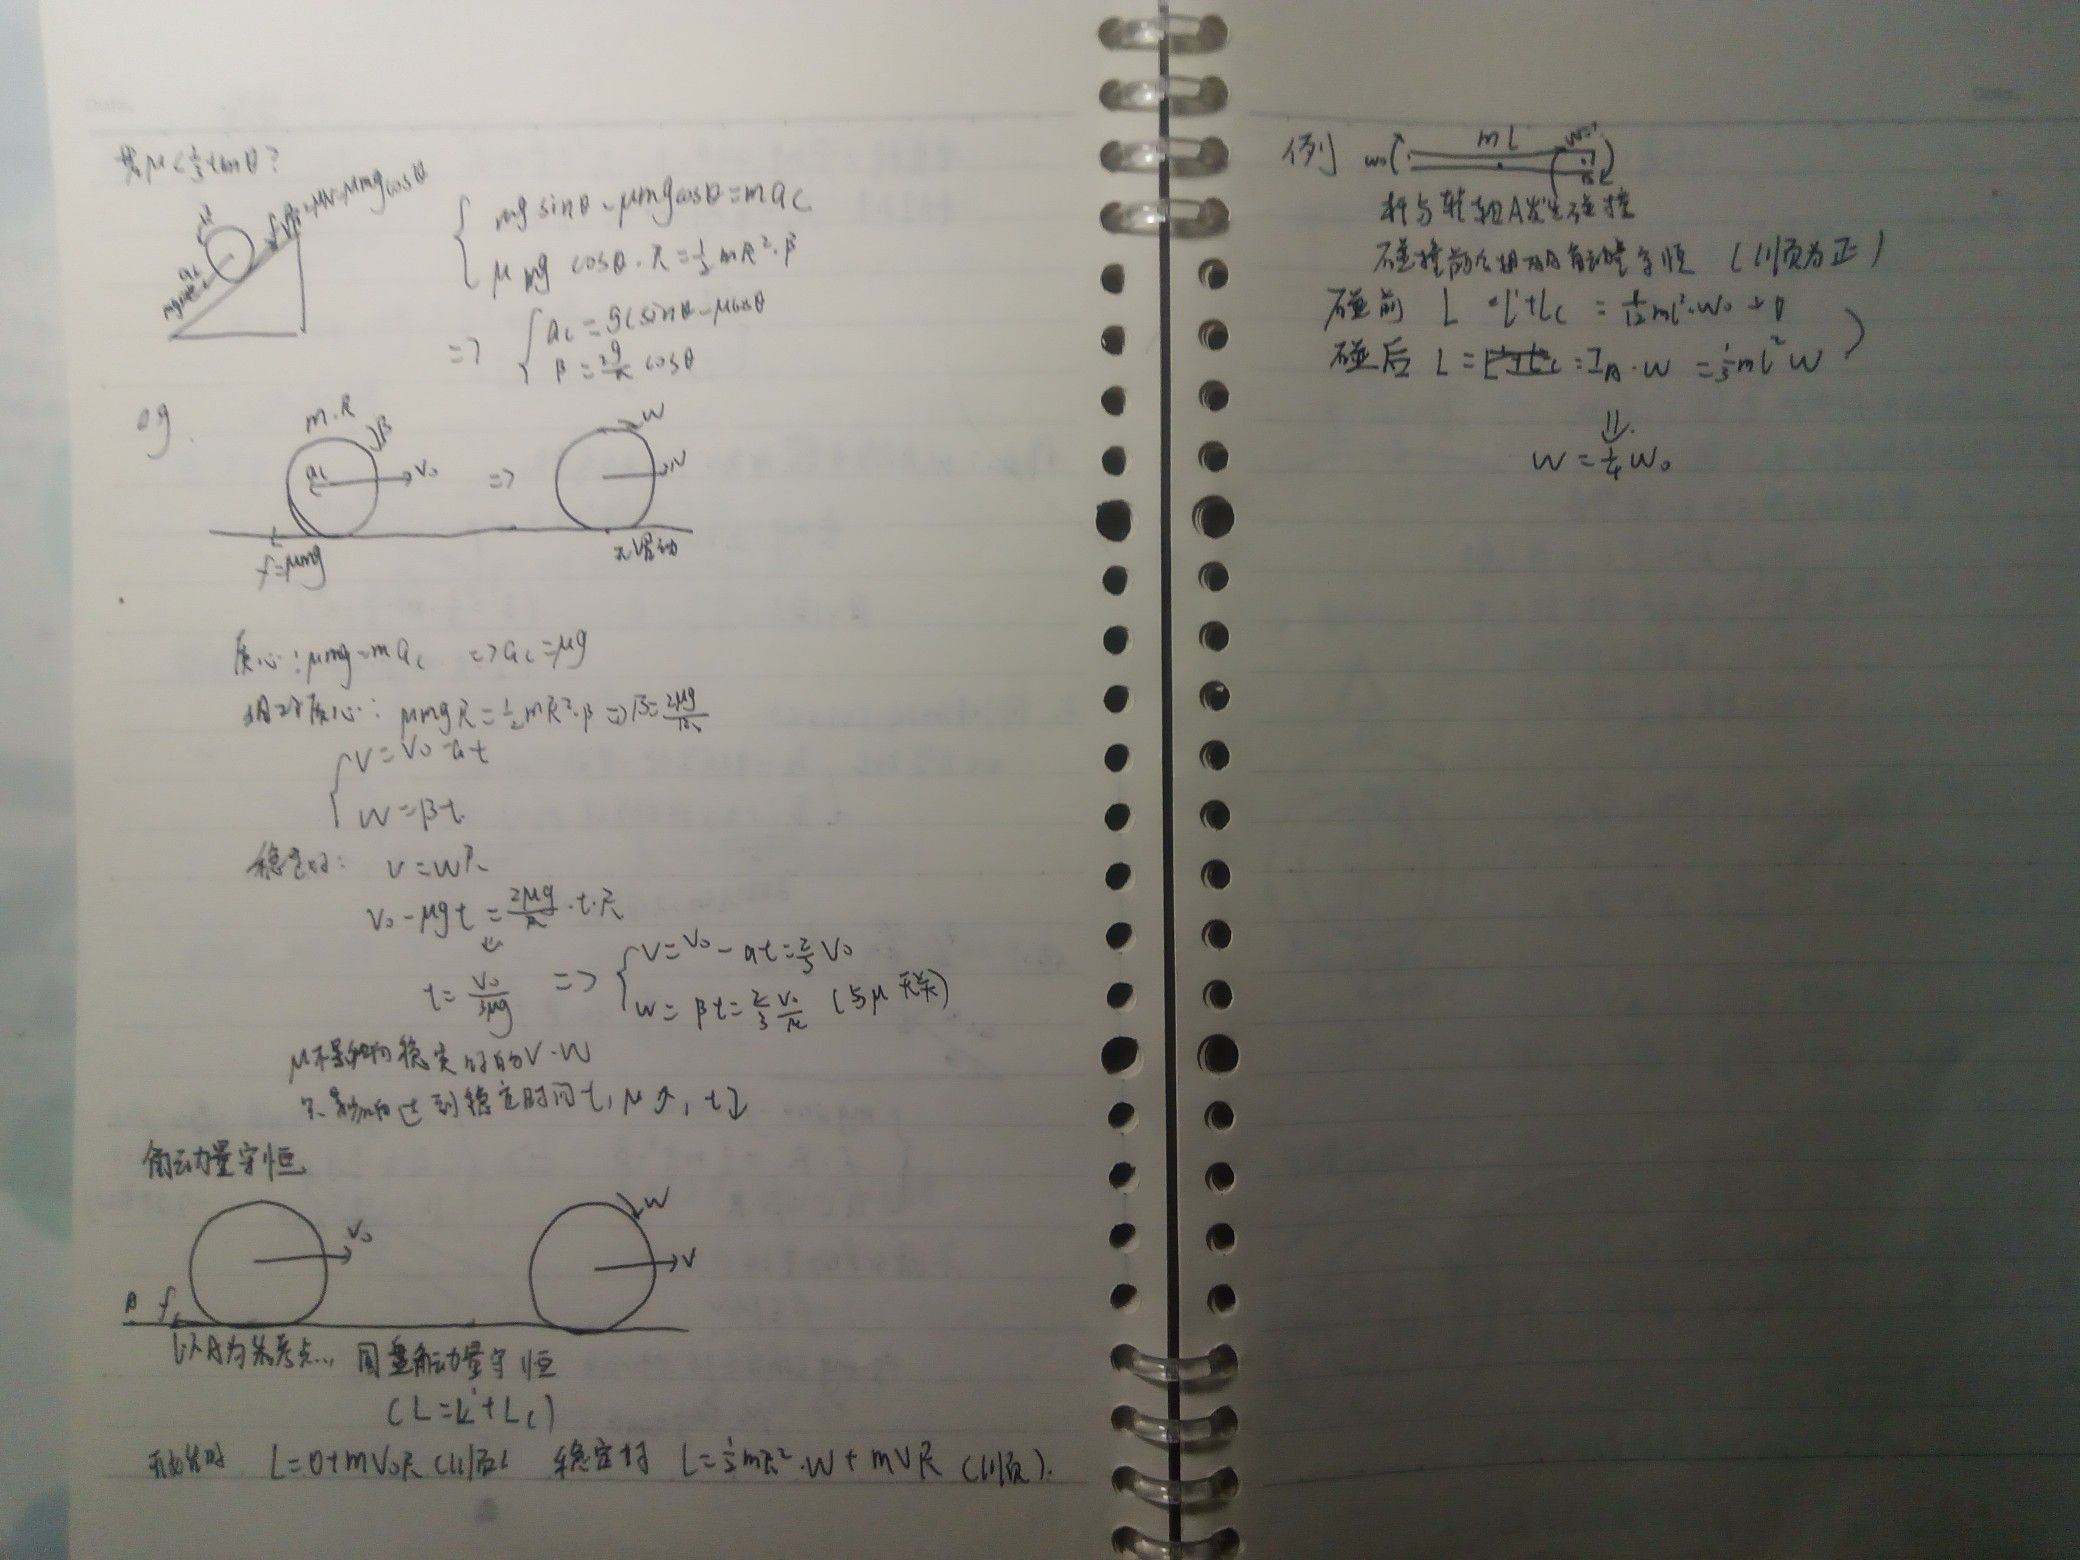 若μ<⅓tanθ?
f=μN=μmgcosθ
ac
mgsinθ
{ mg sinθ - μmgcosθ = mac
μmg cosθ·R = ½mR²·β
=> { ac = g(sinθ-μcosθ
β = 2g/R cosθ
eg.
m.R
β
ac
v₀
=>
w
v
f=μmg
无滑动
质心: μmg=mac => ac=μg
相对质心: μmgR=½mR²·β => β=2μg/R
{ v=v₀-at
w=βt
稳定时: v=wR
v₀-μgt = 2μg/R·t·R
t = v₀/3μg => { v=v₀-at=⅔v₀
w=βt=⅔ v₀/R (与μ无关)
μ不影响稳定时的v.w
只影响达到稳定时间t, μ↑, t↓
角动量守恒
v₀
w
v
A f
以A为参考点, 圆盘角动量守恒
(L=L'+Lc)
开始时 L=0+mv₀R (顺时 稳定时 L=½mR²·w+mvR (顺).
例 w₀ m l w=?
杆与转轴A发生碰撞
碰撞前后相对A角动量守恒 (顺为正)
碰前 L=L'+Lc = 1/12ml²·w₀+0
碰后 L= =I_A·w =⅓ml²w
⇓
w=¼w₀